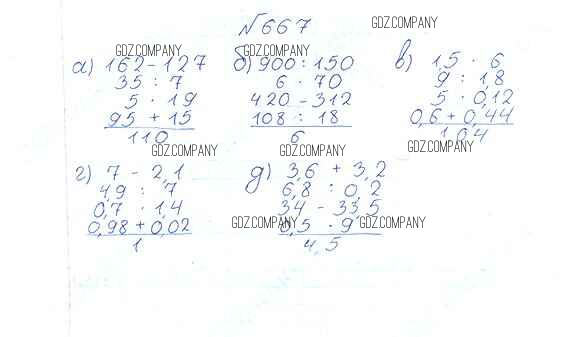 № 667
GDZ.COMPANY
GDZ.COMPANY GDZ.COMPANY
а) 162 - 127 б) 900 : 150 в) 1,5 · 6
GDZ.COMPANY
35 : 7 6 · 70 9 : 1,8
5 · 19 420 - 312 5 · 0,12
95 + 15 108 : 18 0,6 + 0,44
110 6 1,04
GDZ.COMPANY GDZ.COMPANY GDZ.COMPANY
г) 7 - 2,1 д) 3,6 + 3,2
4,9 : 7 6,8 : 0,2
0,7 · 1,4 34 - 33,5
0,98 + 0,02 0,5 · 9
GDZ.COMPANY GDZ.COMPANY
1 4,5
GDZ.COMPANY